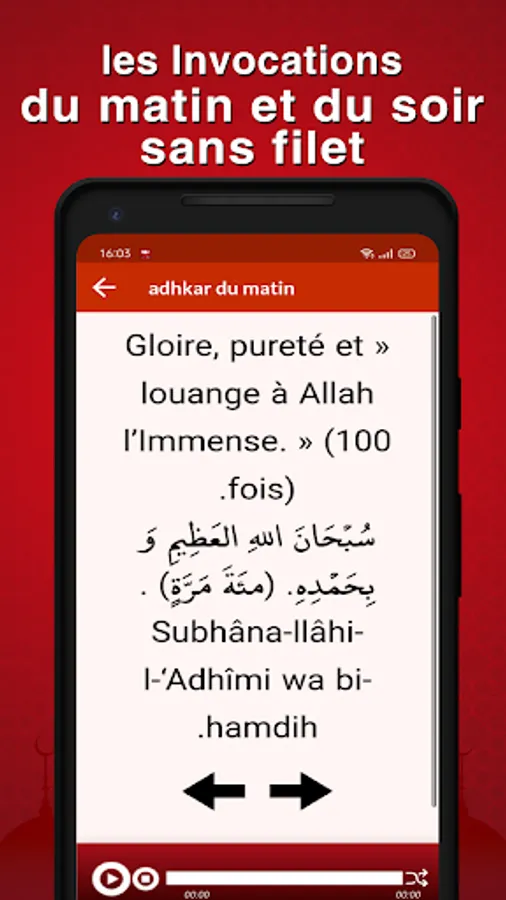 les Invocations
du matin et du soir
sans filet
16:03
adhkar du matin
Gloire, pureté et »
louange à Allah
l’Immense. » (100
.fois)
سُبْحَانَ اللهِ العَظِيمِ وَ
بِحَمْدِهِ. (مئَةَ مَرَّةٍ) .
Subhâna-llâhi-
l-‘Adhîmi wa bi-
.hamdih
00:00
00:00